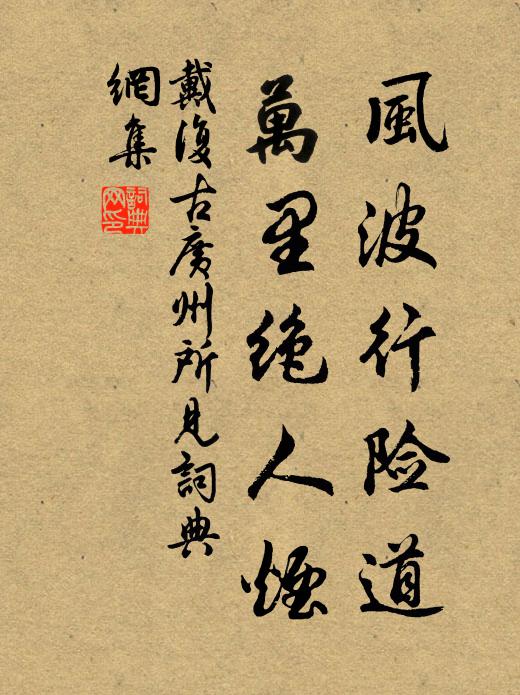 風波行险道
萬里绝人煙
戴復古廣州所見詞典
網集
詞典
网印